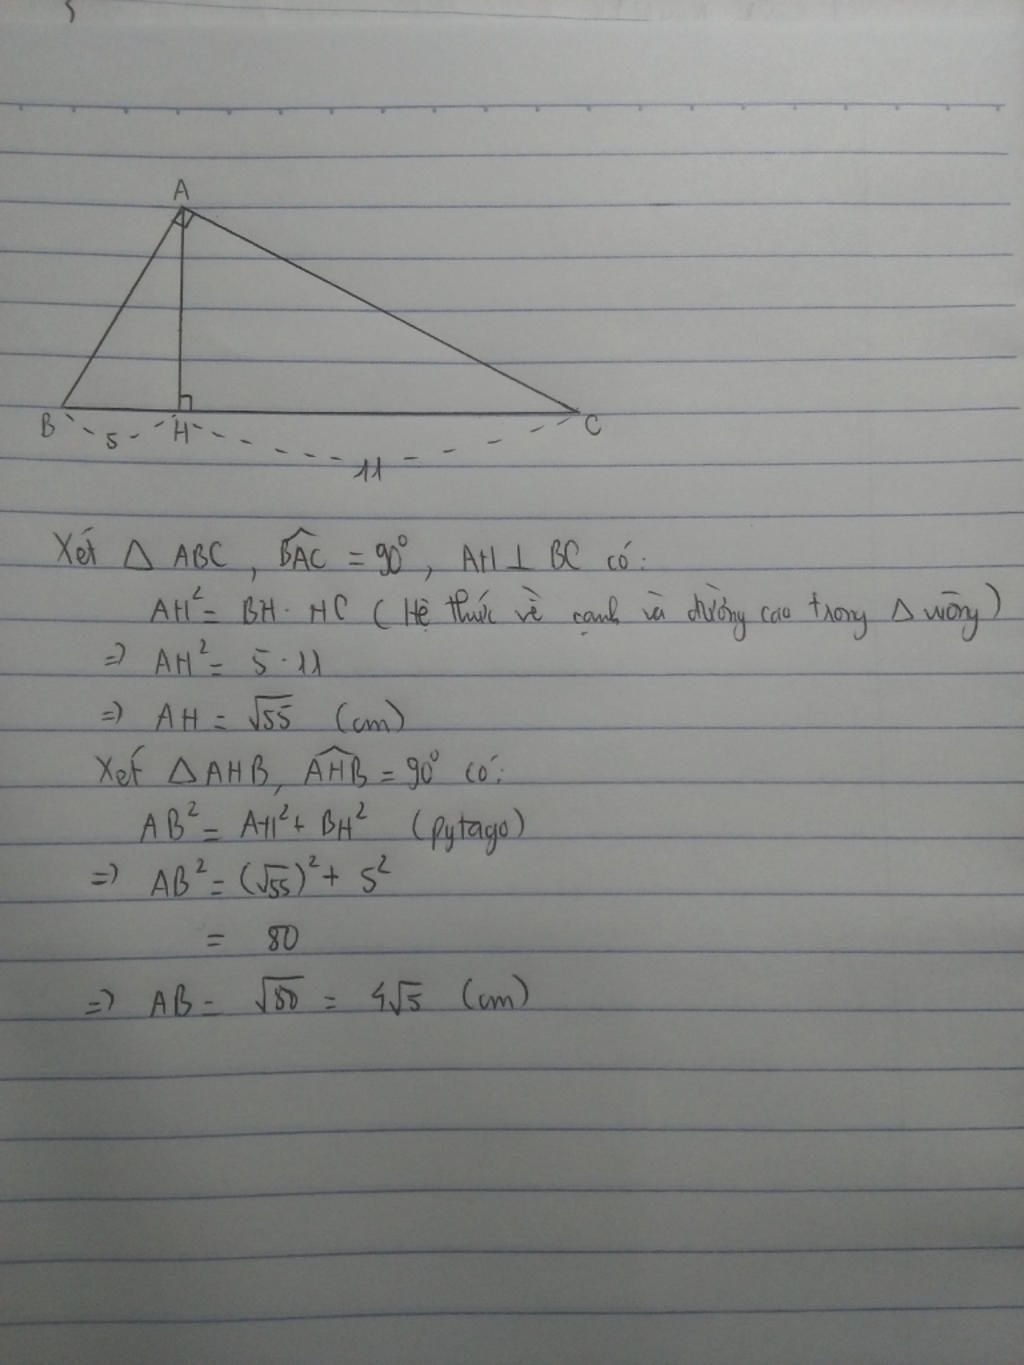 A
B
5
H
11
C
Xét △ ABC, BAC = 90⁰, AH ⊥ BC có:
AH² = BH · HC (Hệ thức về cạnh và đường cao trong △ vuông)
=> AH² = 5 · 11
=> AH = √55 (cm)
Xét △ AHB, AHB = 90⁰ có:
AB² = AH² + BH² (Pytago)
=> AB² = (√55)² + 5²
= 80
=> AB = √80 = 4√5 (cm)